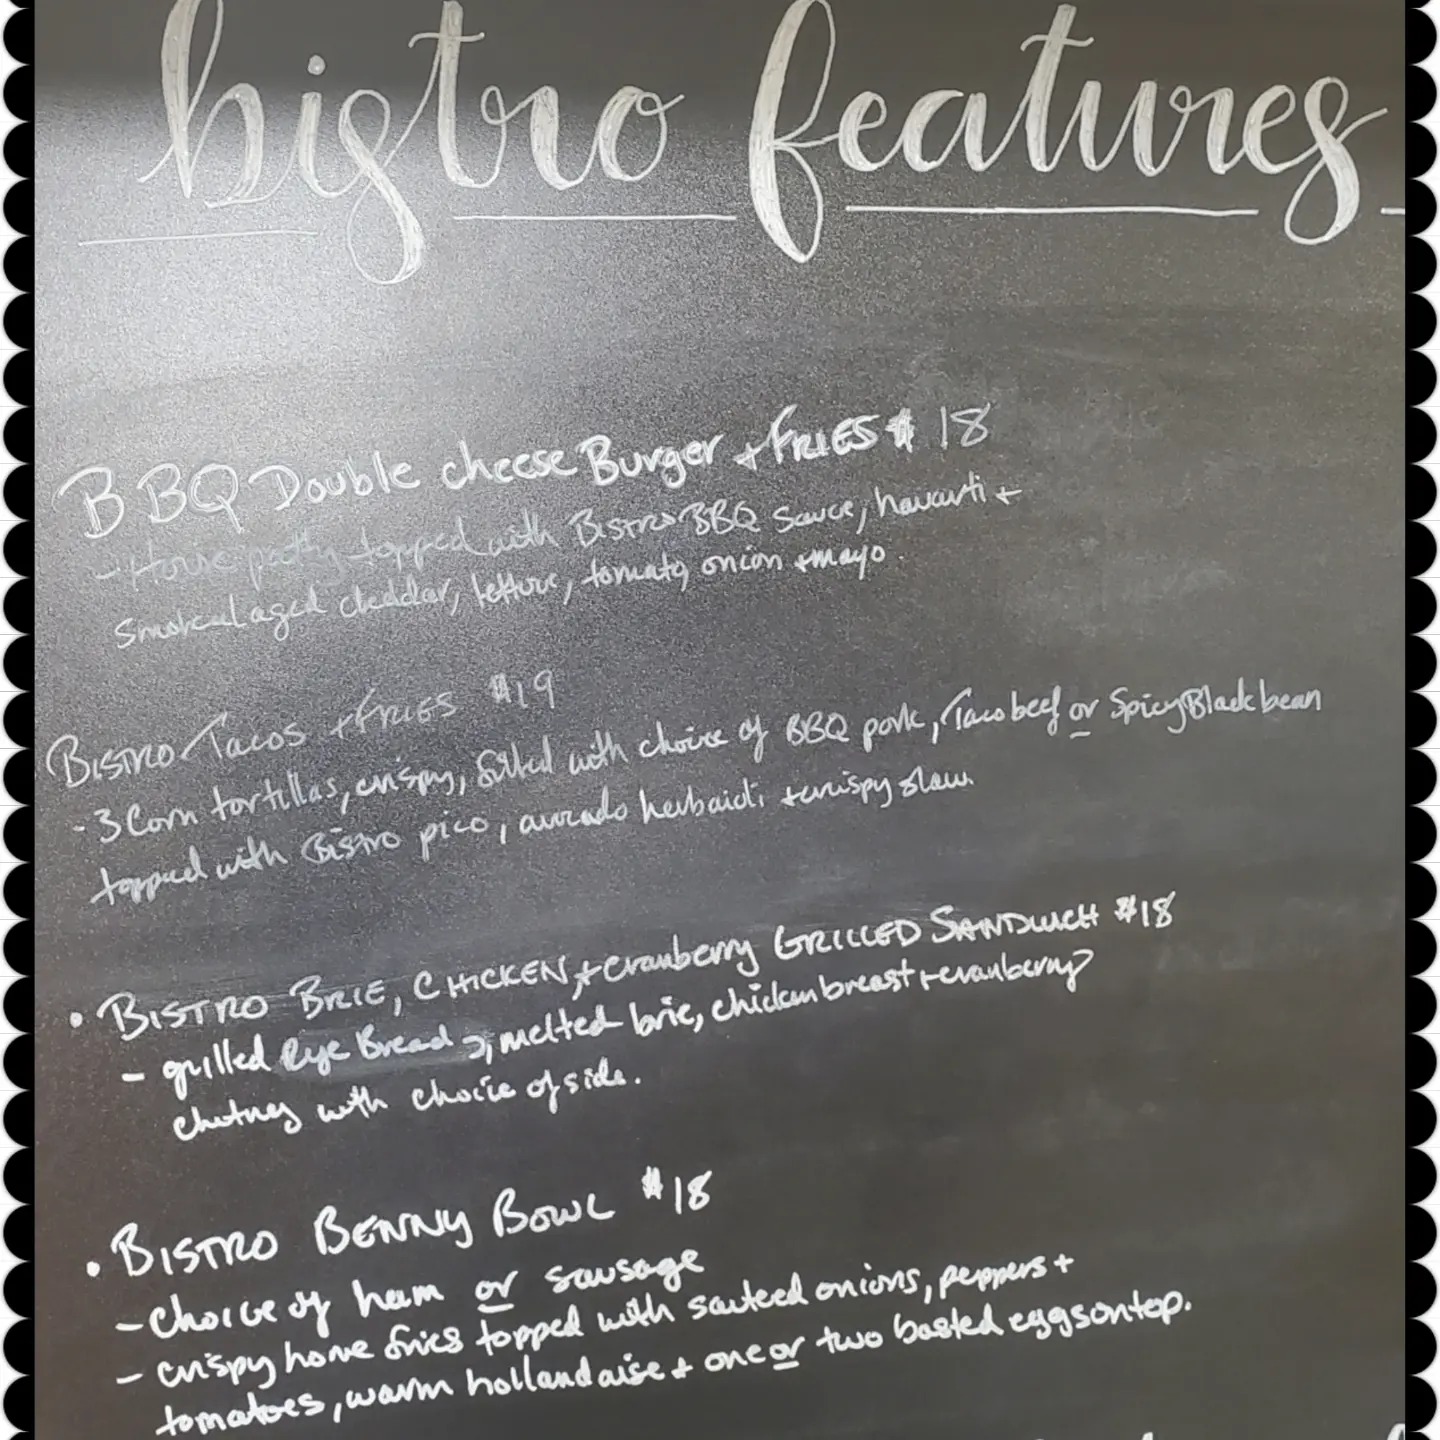 bistro features
BBQ Double cheese Burger + FRIES $18
- House patty topped with BISTRO BBQ Sauce, havarti +
Smoked aged cheddar, lettuce, tomato, onion + mayo.
BISTRO Tacos + FRIES $19
- 3 Corn tortillas, crispy, filled with choice of BBQ pork, Taco beef or Spicy Black bean
topped with Bistro pico, avocado herb aioli + crispy slaw.
• BISTRO BRIE, CHICKEN, + cranberry GRILLED SANDWICH $18
- grilled Rye Bread, melted brie, chicken breast + cranberry
chutney with choice of side.
• BISTRO BENNY BOWL $18
- choice of ham or sausage
- crispy home fries topped with sauteed onions, peppers +
tomatoes, warm hollandaise + one or two basted eggs on top.